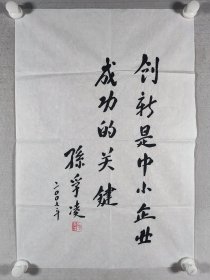 创新是中小企业
成功的关键
孫孚凌
二〇〇七年